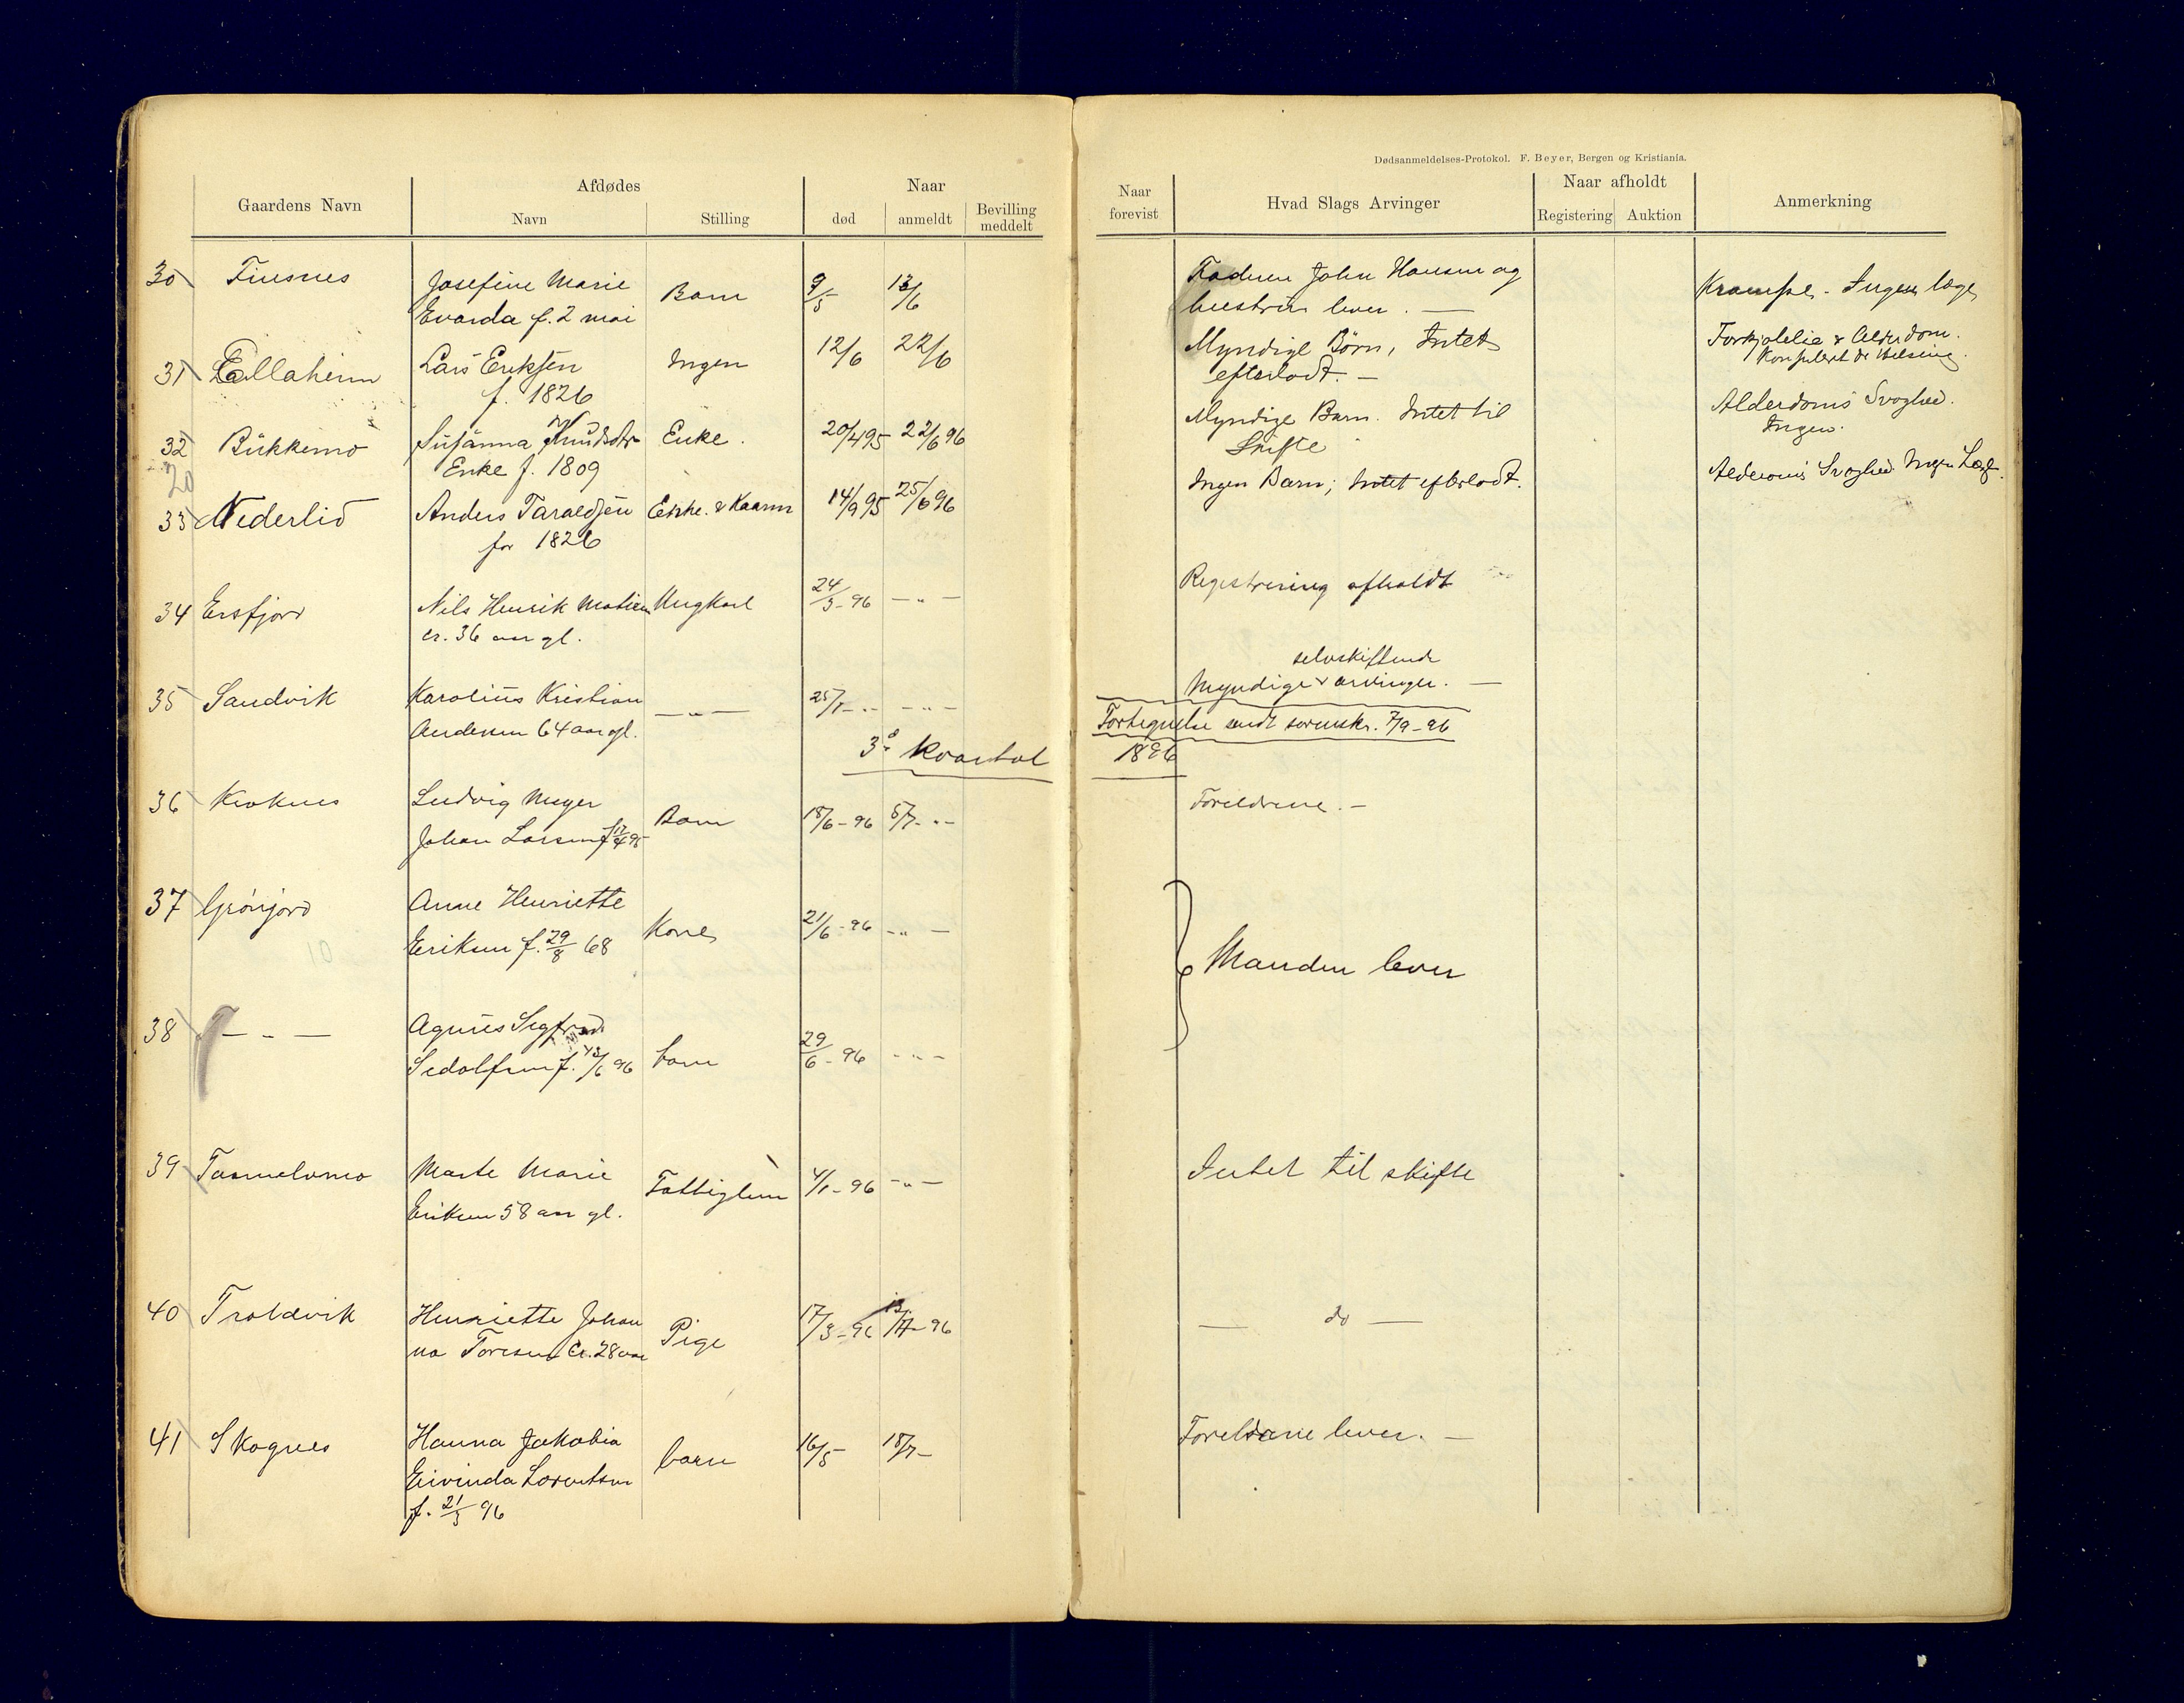 Dødsanmeldelses-Protokol. F. Beyer, Bergen og Kristiania.
Gaardens Navn
Afdødes
Navn
Stilling
Naar
død
anmeldt
Bevilling meddelt
Naar forevist
Hvad Slags Arvinger
Naar afholdt
Registering
Auktion
Anmerkning
30 Finsnes Josefine Marie Barn 9/5 13/6 Faderen John Hansen og Krampe - Ingen læge
Evarda f. 2 mai hustru lever. —
31 Lallaheim Lars Eriksen Ingen 12/6 22/6 Myndige Børn, Intet Forkjølelse & Alderdom.
f. 1826 efterladt. — Konsulert Dr
32 Bukkemo Susanna Knudsdtr Enke. 20/4 95 22/6 96 Myndige Barn. Intet til Alderdoms Svaghed.
Enke f. 1809 Skifte Ingen.
20
33 Nederlid Anders Taraldsen Enke. & Kaarm 14/9 95 25/6 96 Ingen Barn; Intet efterladt. Alderdoms Svaghed Ingen Læge.
for 1826
34 Ersfjord Nils Henrik Matisen Ungkarl 24/3-96 — „ — Registrering afholdt
cr. 36 aar gl.
selvskiftende
35 Sandvik Karolius Kristian — „ — 25/1 - „ - — „ — Myndige arvinger. —
Andersen 64 aar gl. Fortegnelse sendt sorenskr. 7/9-96
3die kvartal 1896
36 Kroknes Ludvig Meyer Barn 18/6-96 5/7 - „ - Forældrene. —
Johan Larsen f 17/4 95
37 Grønjord Anne Henriette Kone 21/6-96 - „ — Manden lever
Eriksen f. 29/8 68
10
38 — „ — Agnes Sigfrid barn 29/6-96 - „ -
Sedolfsen f. 13/6 96
39 Tarmelvmo Marte Marie Fattiglem 4/1-96 - „ — Intet til skifte
Eriksen 58 aar gl.
40 Troldvik Henriette Johan Pige 17/3-96 13/7-96 — do —
na Toresen Cr. 28 aar
41 Skognes Hanna Jakobia barn 16/5- 18/7- Forældrene lever. —
Eivinda Lorentsen
f. 21/3 96